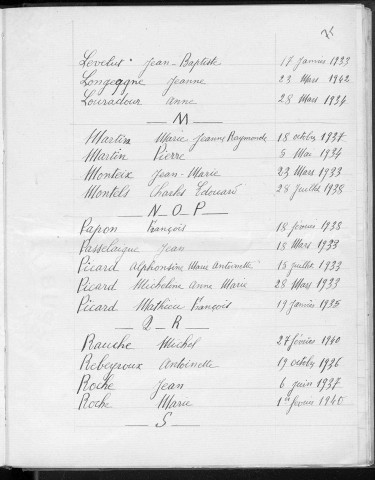 Levelut Jean-Baptiste 17 janvier 1933
Longeagne Jeanne 23 Mars 1942
Louradour Anne 28 Mars 1934
M
Martin Marie Jeanne Raymonde 18 octobre 1937
Martin Pierre 5 Mai 1934
Monteix Jean-Marie 23 Mars 1933
Montels Charles Edouard 28 juillet 1938
N_O_P
Papon François 18 février 1938
Passelaigue Jean 18 Mars 1933
Picard Alphonsine Marie Antoinette 15 juillet 1933
Picard Micheline Anne Marie 28 Mars 1933
Picard Mathieu François 19 janvier 1935
Q_R
Rauche Michel 27 février 1940
Rebeyroux Antoinette 19 octobre 1936
Roche Jean 6 juin 1937
Roche Marie 1er février 1940
S